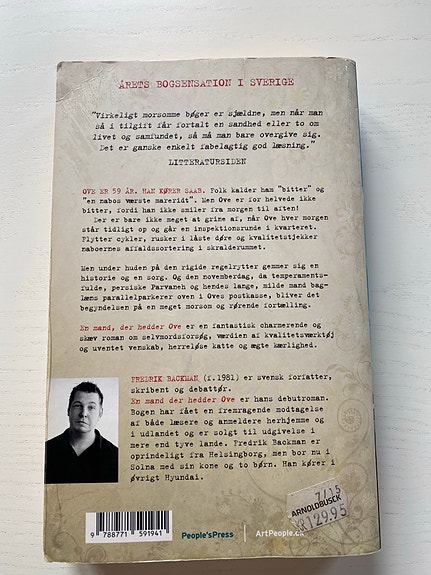 ÅRETS BOGSENSATION I SVERIGE
"Virkeligt morsomme bøger er sjældne, men når man
så i tilgift får fortalt en sandhed eller to om
livet og samfundet, så må man bare overgive sig.
Det er ganske enkelt fabelagtig god læsning."
LITTERATURSIDEN
OVE ER 59 ÅR. HAN KØRER SAAB. Folk kalder ham "bitter" og
"en nabos værste mareridt". Men Ove er for helvede ikke
bitter, fordi han ikke smiler fra morgen til aften!
Der er bare ikke meget at grine af, når Ove hver morgen
står tidligt op og går en inspektionsrunde i kvarteret.
Flytter cykler, rusker i låste døre og kvalitetstjekker
naboernes affaldssortering i skralderummet.
Men under huden på den rigide regelrytter gemmer sig en
historie og en sorg. Og den novemberdag, da temperaments-
fulde, persiske Parvaneh og hendes lange, milde mand bag-
læns parallelparkerer oven i Oves postkasse, bliver det
begyndelsen på en meget morsom og rørende fortælling.
En mand, der hedder Ove er en fantastisk charmerende og
skæv roman om selvmordsforsøg, værdien af kvalitetsværktøj
og uventet venskab, herreløse katte og ægte kærlighed.
FREDRIK BACKMAN (f.1981) er svensk forfatter,
skribent og debattør.
En mand der hedder Ove er hans debutroman.
Bogen har fået en fremragende modtagelse
af både læsere og anmeldere herhjemme og
i udlandet og er solgt til udgivelse i
mere end tyve lande. Fredrik Backman er
oprindelig fra Helsingborg, men bor nu i
Solna med sin kone og to børn. Han kører i
øvrigt Hyundai.
7/15
ARNOLDBUSCK
KR129.95
9 788771 591941
People'sPress
ArtPeople.dk